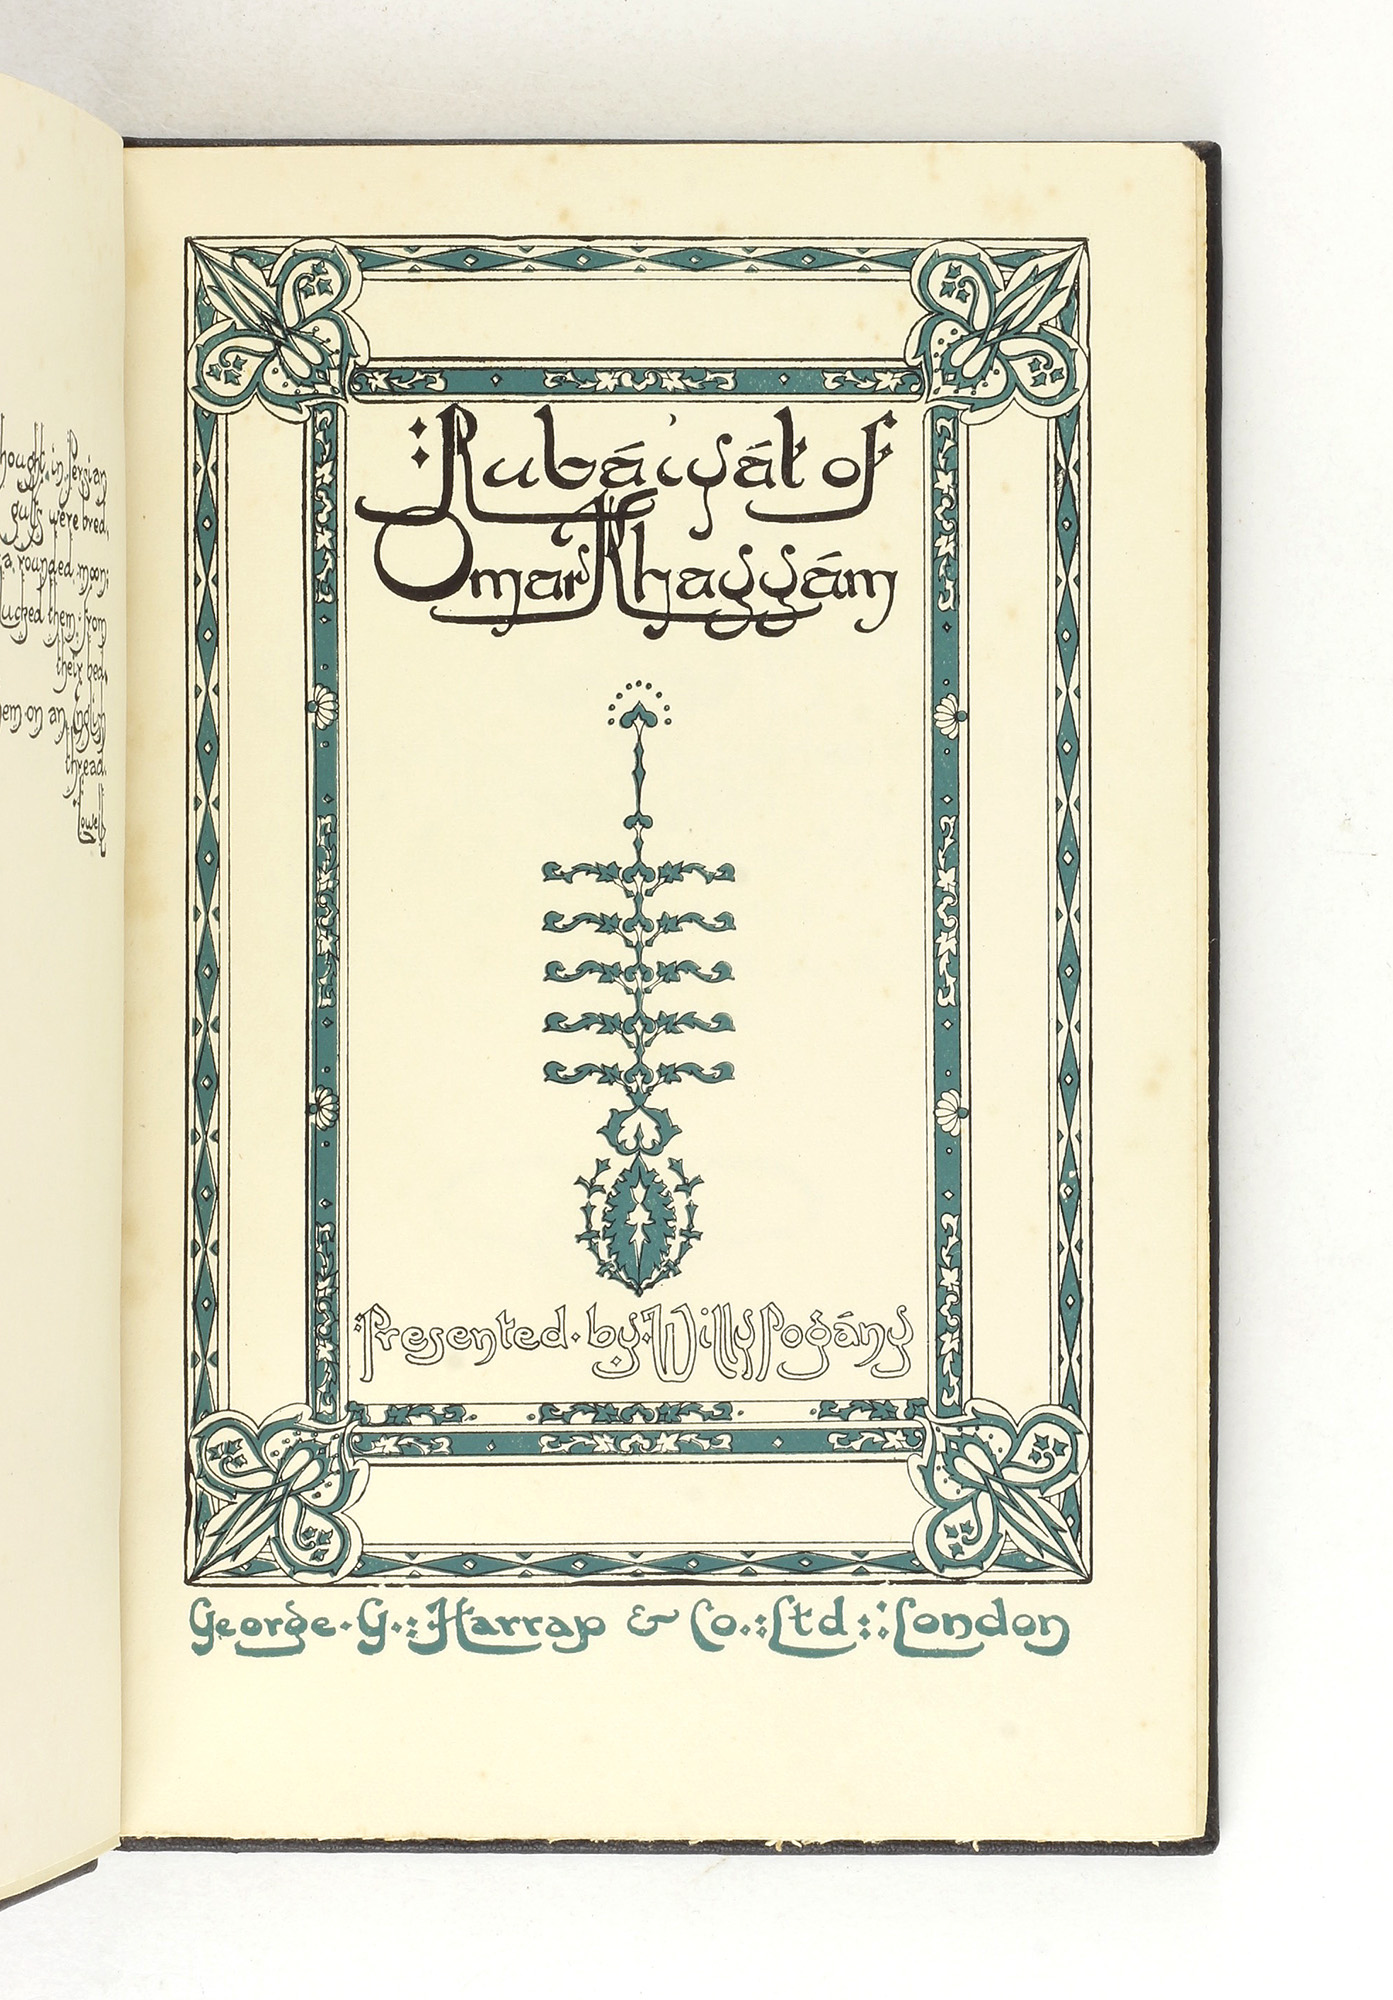 hought in Persian
gulfs were bred,
a rounded moon;
lucked them from
their bed,
hem on an English
thread.
Lowell
Rubáiyát of
Omar Khayyám
Presented · by · Willy Pogány
George · G · Harrap & Co. Ltd : London